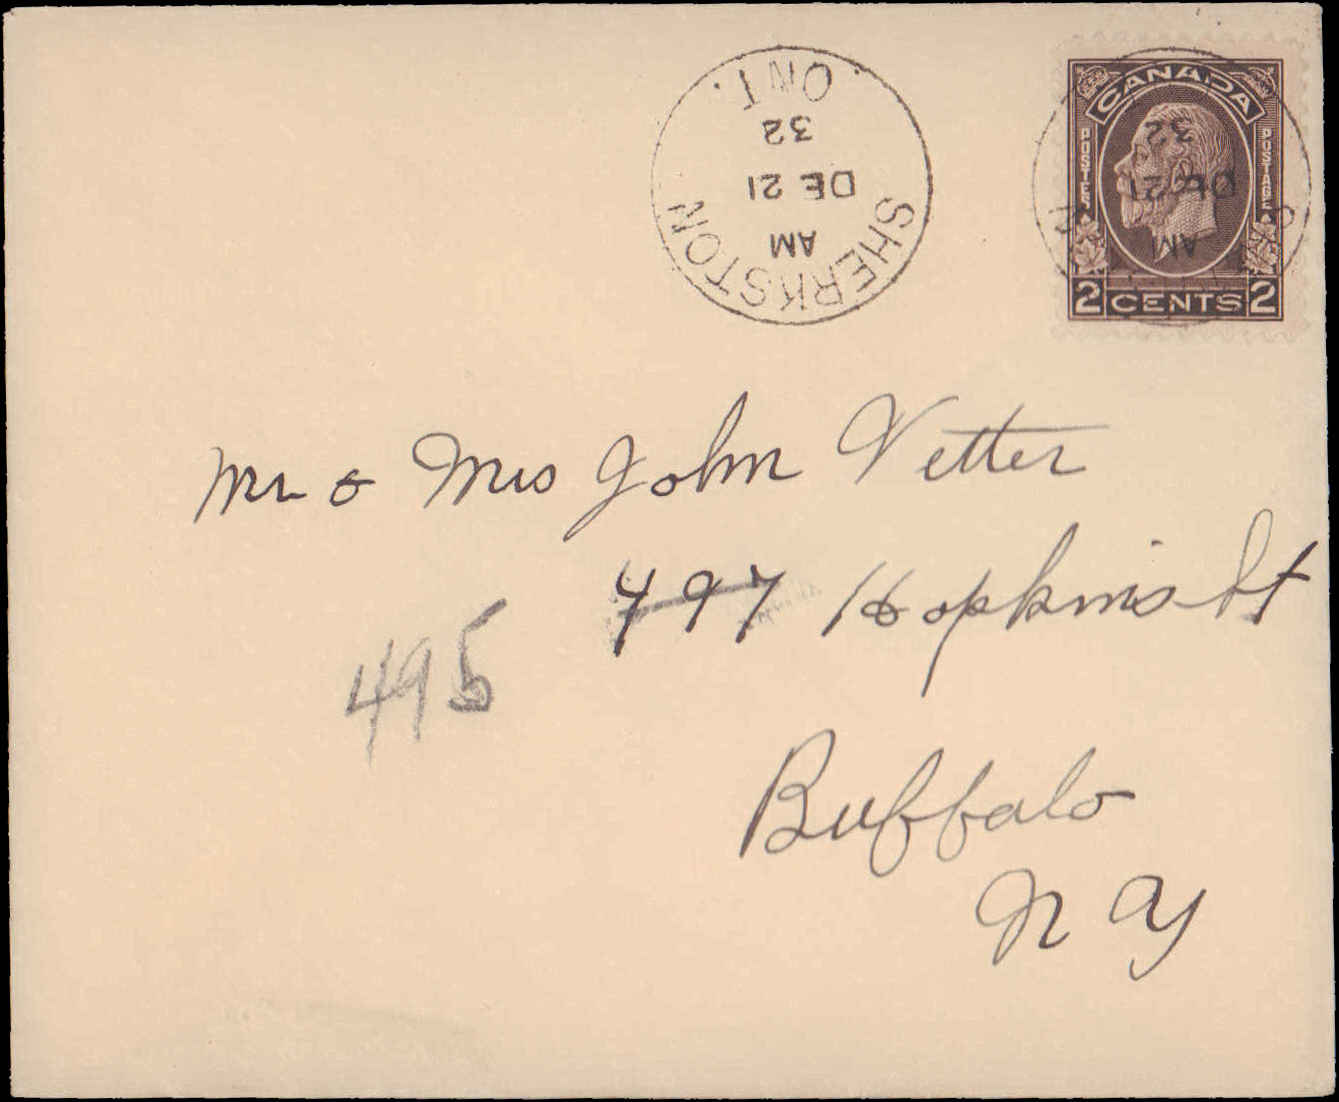 SHERKSTON
AM
DE 21
32
ONT.
CANADA
POSTES
POSTAGE
AM
DE 21
32
2 CENTS 2
Mr & Mrs John Vetter
497 Hopkins St
495
Buffalo
N Y